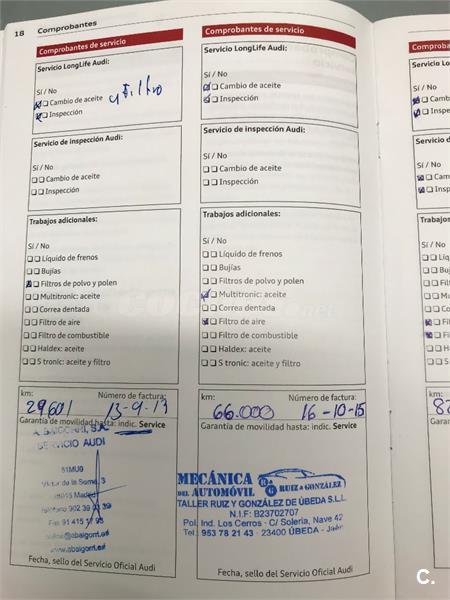 18 Comprobantes
Comprobantes de servicio
Servicio LongLife Audi:
Sí / No
Cambio de aceite
y Filtro
Inspección
Servicio de inspección Audi:
Sí / No
Cambio de aceite
Inspección
Trabajos adicionales:
Sí / No
Líquido de frenos
Bujías
Filtros de polvo y polen
Multitronic: aceite
Correa dentada
Filtro de aire
Filtro de combustible
Haldex: aceite
S tronic: aceite y filtro
km: Número de factura:
29.601 13-9-13
Garantía de movilidad hasta: indic. Service
A. BAIGORRI, S.A.
SERVICIO AUDI
Madrid
Fax 91 415
www.abaigorri.es
Fecha, sello del Servicio Oficial Audi
Comprobantes de servicio
Servicio LongLife Audi:
Sí / No
Cambio de aceite
Inspección
Servicio de inspección Audi:
Sí / No
Cambio de aceite
Inspección
Trabajos adicionales:
Sí / No
Líquido de frenos
Bujías
Filtros de polvo y polen
Multitronic: aceite
Correa dentada
Filtro de aire
Filtro de combustible
Haldex: aceite
S tronic: aceite y filtro
km: Número de factura:
66.000 16-10-15
Garantía de movilidad hasta: indic. Service
MECÁNICA
DEL AUTOMÓVIL
R&G RUIZ & GONZÁLEZ
TALLER RUIZ Y GONZÁLEZ DE ÚBEDA S.L.L.
N.I.F: B23702707
Pol. Ind. Los Cerros · C/ Soleria, Nave 42
Tel.: 953 78 21 43 · 23400 ÚBEDA - Jaén
Fecha, sello del Servicio Oficial Audi
Comproba
Servicio Lo
Sí / No
Cam
Insp
Servicio d
Sí / No
Cam
Insp
Trabajos
Sí / No
Líq
Buj
Filt
Mu
Cor
Filt
Filt
Ha
S t
km:
82
Garantía
C.